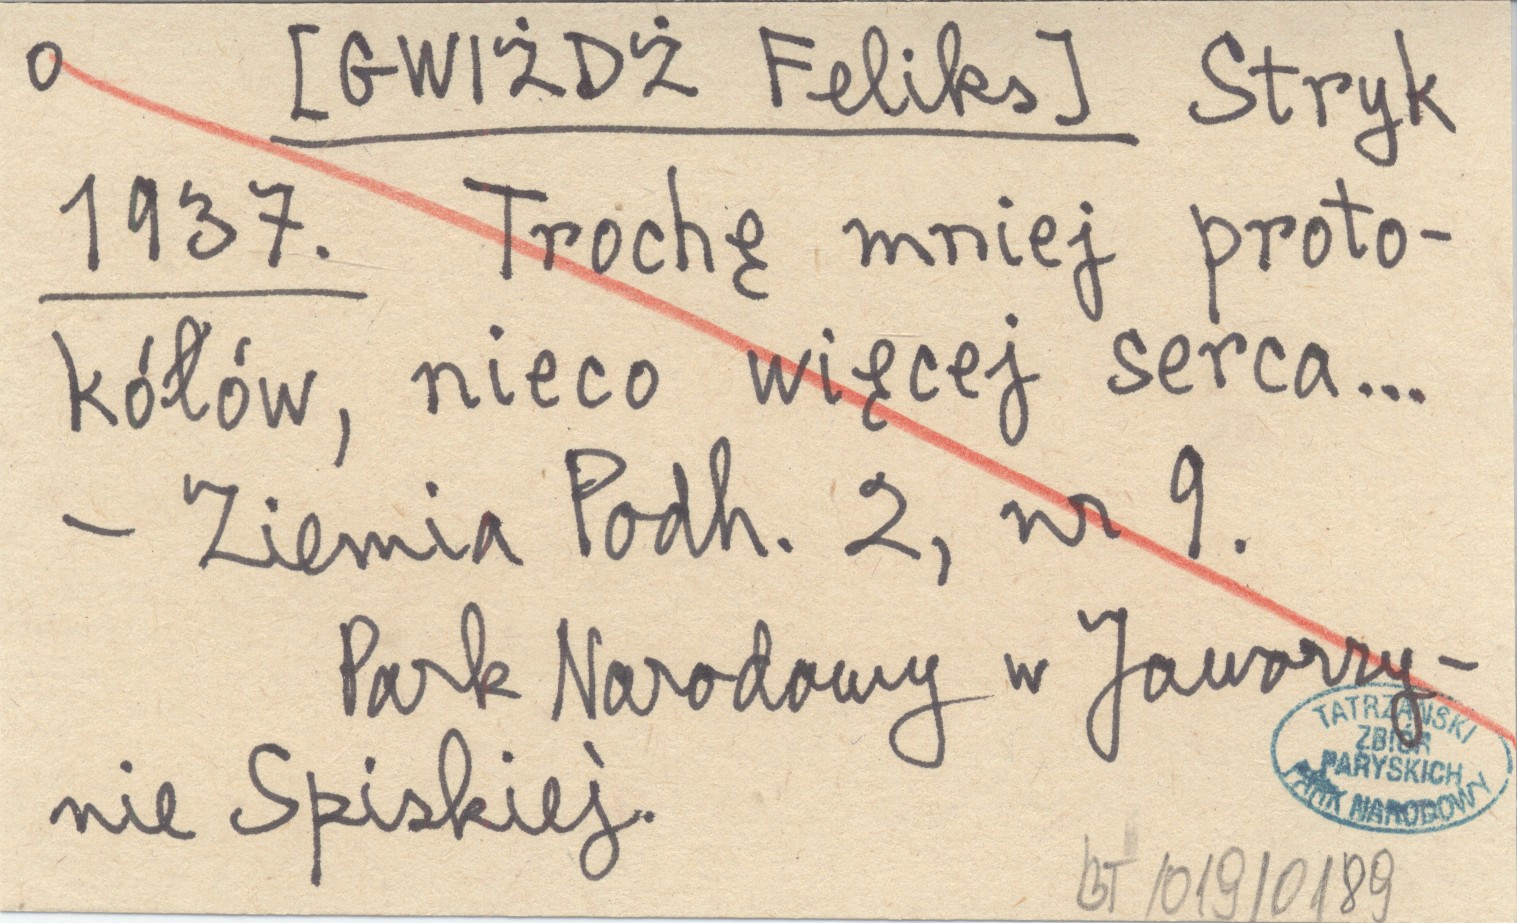 o [GWIŻDŻ Feliks] Stryk
1937. Trochę mniej proto-
kółów, nieco więcej serca...
- Ziemia Podh. 2, nr 9.
Park Narodowy w Jaworzy-
nie Spiskiej.
TATRZAŃSKI
ZBIÓR
PARYSKICH
PARK NARODOWY
BT/019/0189